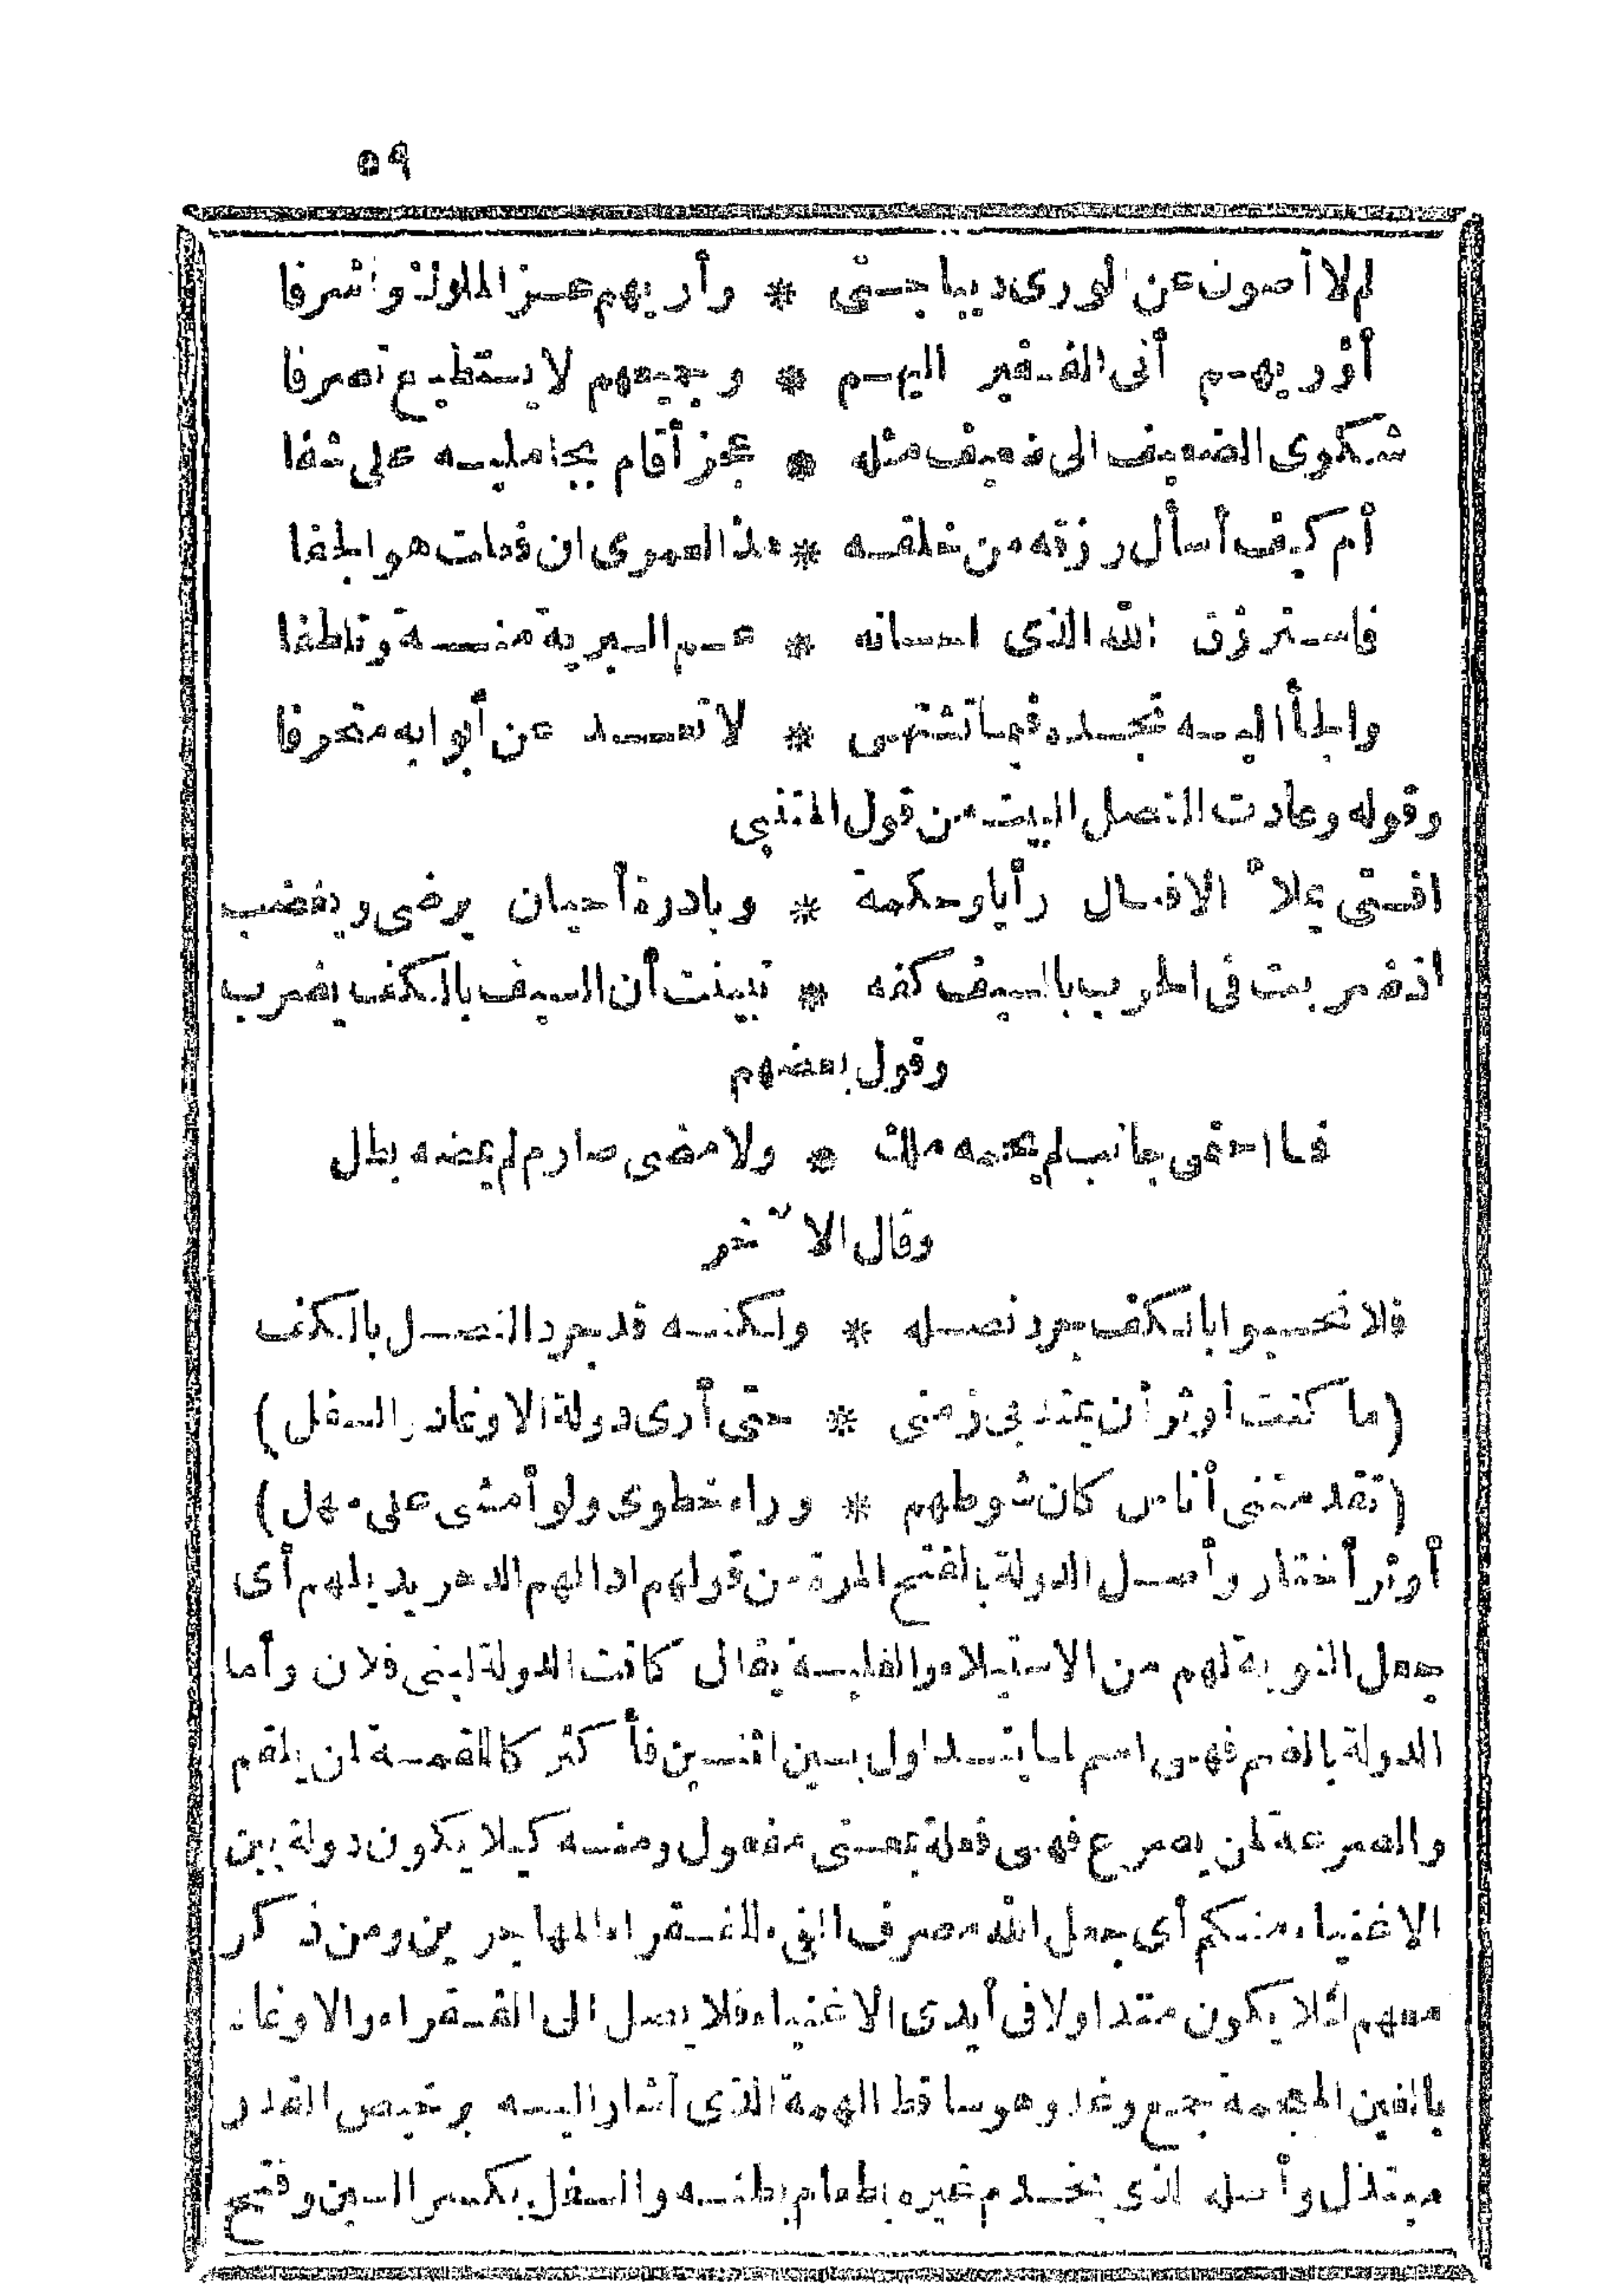 ٥٩
لم لا أصون عن الورى ديباجتى * وأريهم عز الملوك وأشرفا
أأريهم أنى الفقير اليهم * وجميعهم لا يستطيع تصرفا
شكوى الضعيف الى ضعيف مثله * عجز أقام بحامليه على شفا
أم كيف أسأل رزقه من خلقه * هذا لعمرى ان فعلت هو الجفا
فاسترزق الله الذى احسانه * عم البرية منة وتلطفا
والجأ اليه تجده فيما تشتهى * لا تعد عن أبوابه متحرفا
وقوله وعادت النصل البيت من قول المتنبى
افتى يملأ الافعال رأيا وحكمة * وبادرة أحيان يرضى ويغضب
اذ ضربت فى الحرب بالسيف كفه * تبينت أن السيف بالكف يضرب
وقول بعضهم
فما احتمى جانب لم يحمه ملك * ولا مضى صارم لم يمضه بطل
وقال الآخر
فلا تحسبوا بالكف جرد نصله * ولكنه قد جرد النصل بالكف
(ما كنت أوثر أن يمتد بى زمنى * حتى أرى دولة الاوغاد والسفل)
(تقدمتنى أناس كان شوطهم * وراء خطوى ولو أمشى على مهل)
أوثر أختار وأصل الدولة بالفتح المرة من قولهم ادالهم الدهر يديلهم أى
جعل النوبة لهم من الاستيلاء والغلبة يقال كانت الدولة لبنى فلان وأما
الدولة بالضم فهى اسم لما يتداول بين اثنين فأكثر كاللقمة لمن يلقم
والصرعة لمن يصرع فهى فعلة بمعنى مفعول ومنه كيلا يكون دولة بين
الاغنياء منكم أى جعل الله مصرف الفىء للفقراء المهاجرين ومن ذكر
معهم لئلا يكون متداولا فى أيدى الاغنياء فلا يصل الى الفقراء والاوغاد
بالغين المعجمة جمع وغد وهو ساقط الهمة الذى أشار اليه برخيص القدر
مبتذل وأصله الذى يخدم غيره بطعام بطنه والسفل بكسر السين وفتح